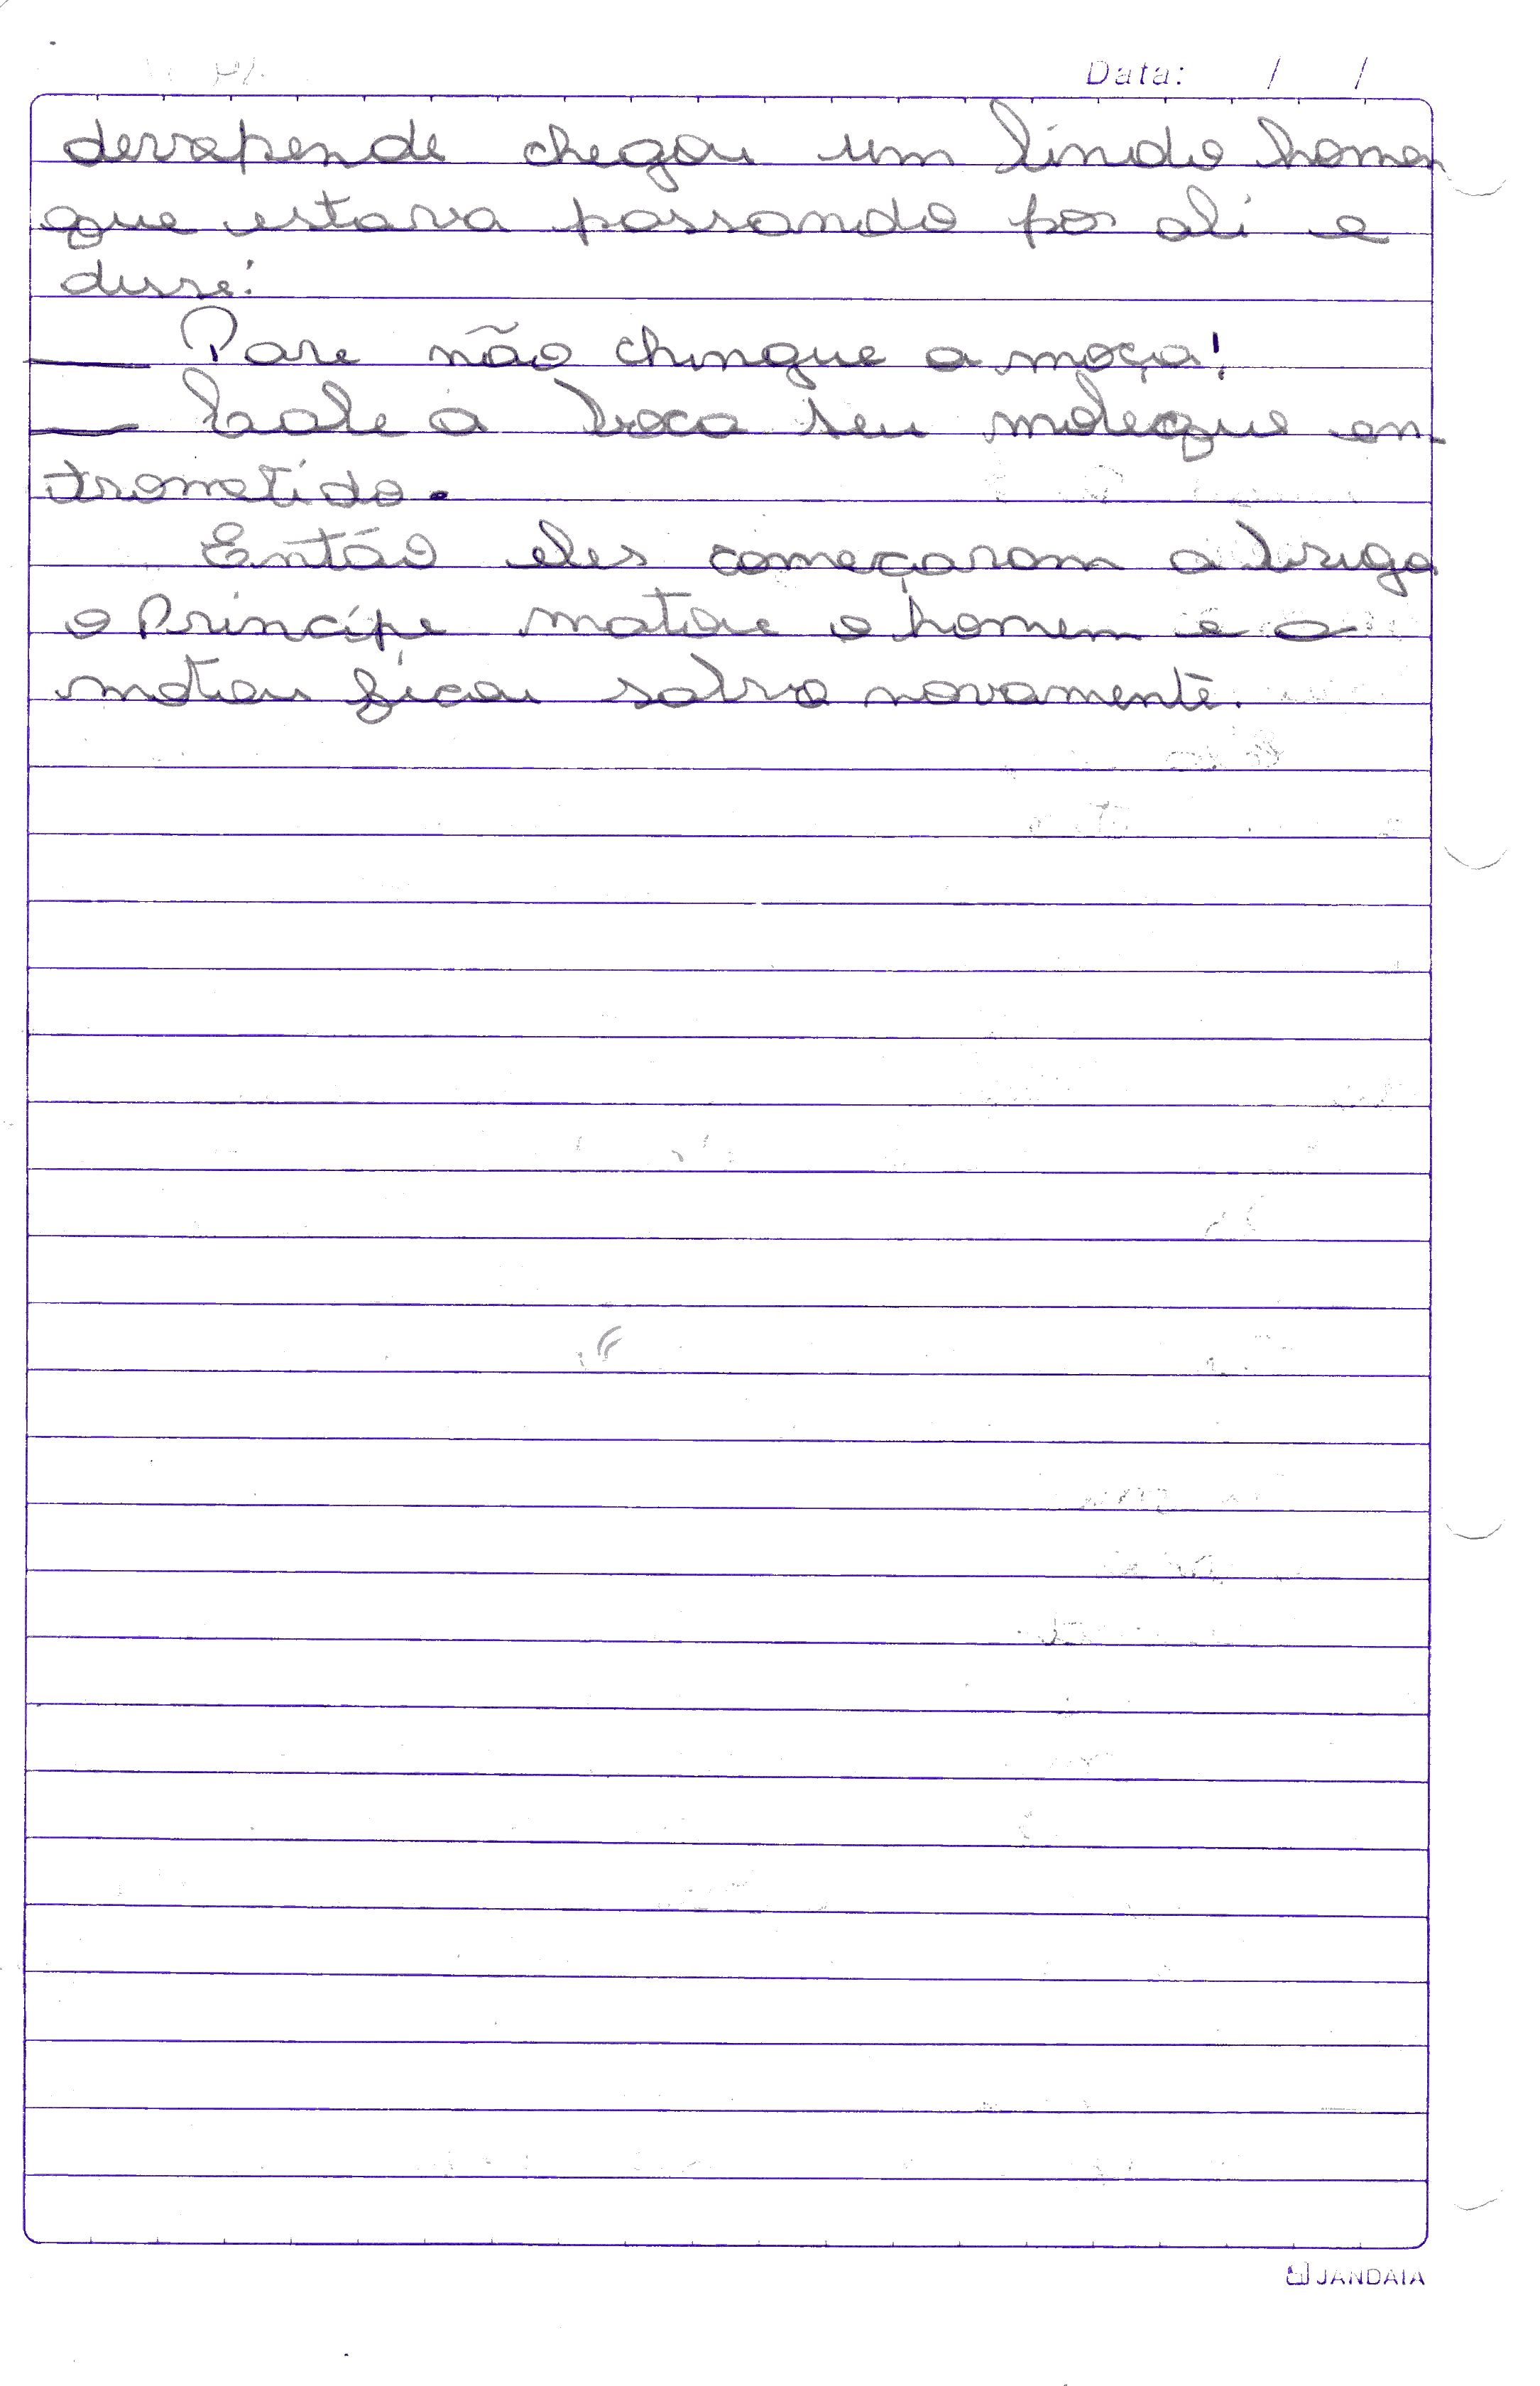 Data: / /
derrepende chegou um lindo homen
que estava passando por ali e
disse:
— Pare não chingue a moça!
— Cale a boca seu moleque en-
trometido.
Então eles começaram a briga
o Príncipe matou e o homem e a
matou ficou sobra novamente.
JANDAIA